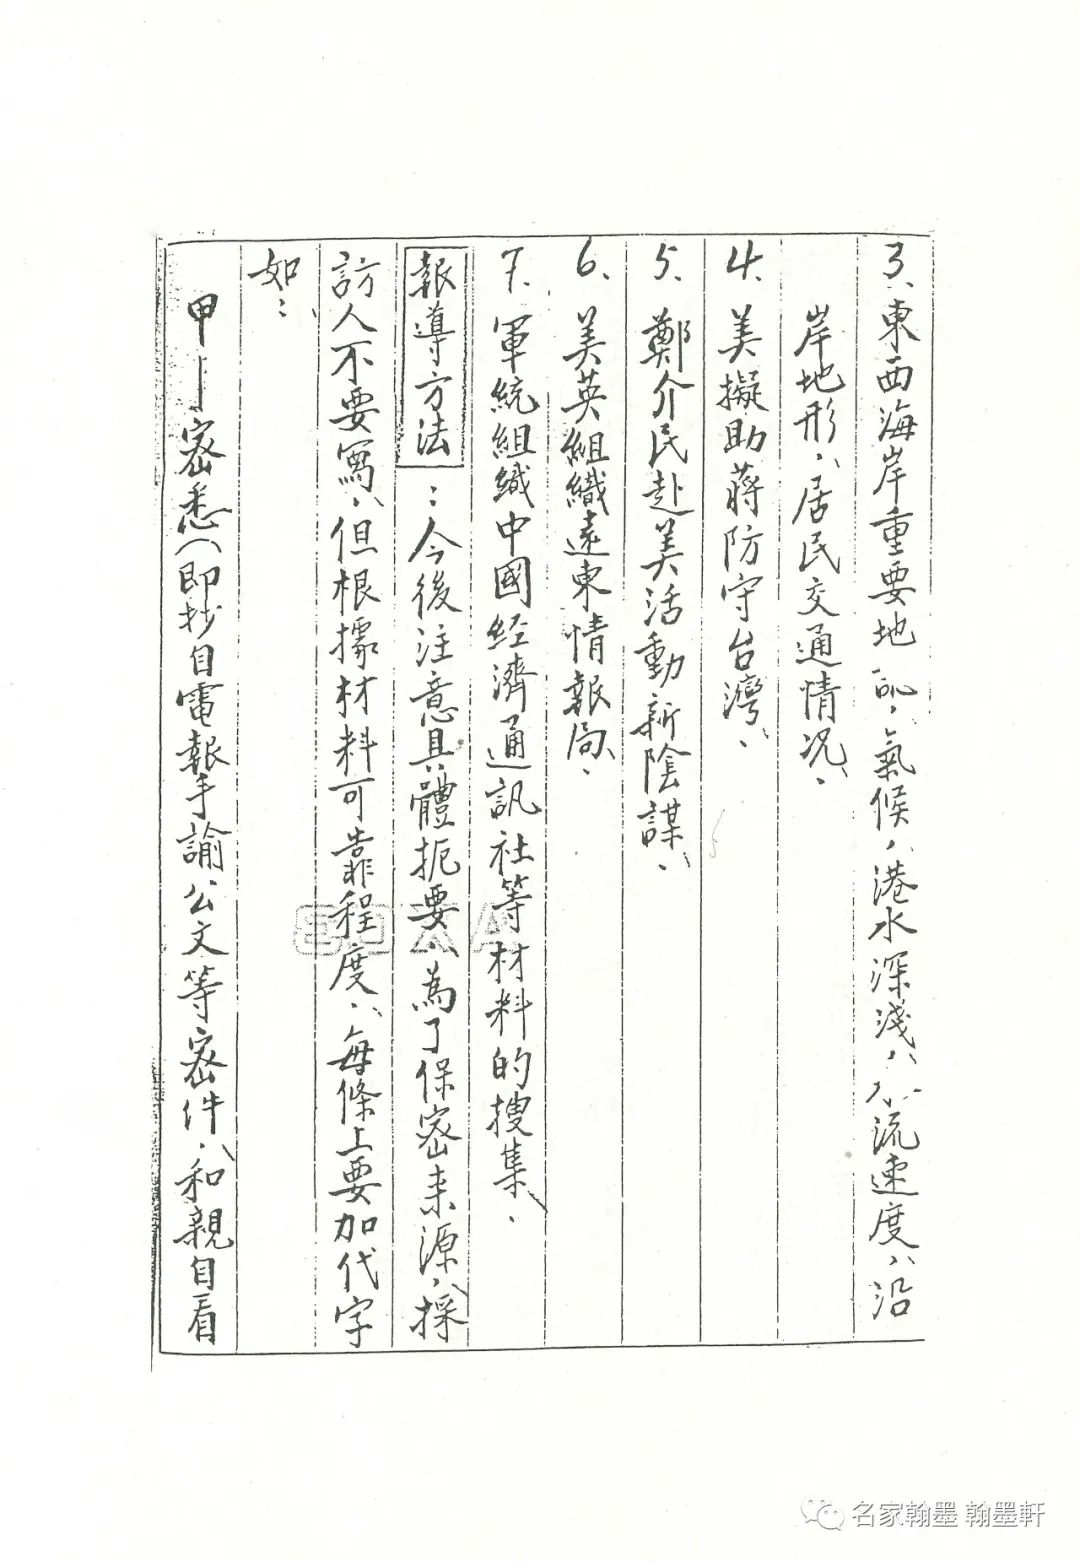 3、東西海岸重要地　、氣候、港水深淺、水流速度、沿
岸地形、居民交通情况、
4、美擬助蔣防守台灣、
5、鄭介民赴美活動新陰謀、
6、美英組織遠東情報局、
7、軍統組織中國経濟通訊社等材料的搜集、
報導方法：今後注意具體扼要、為了保密来源、採
訪人不要寫、但根據材料可靠程度、每條上要加代字
如：
甲—密悉（即抄自電報手諭公文等密件、和親自看
名家翰墨 翰墨軒